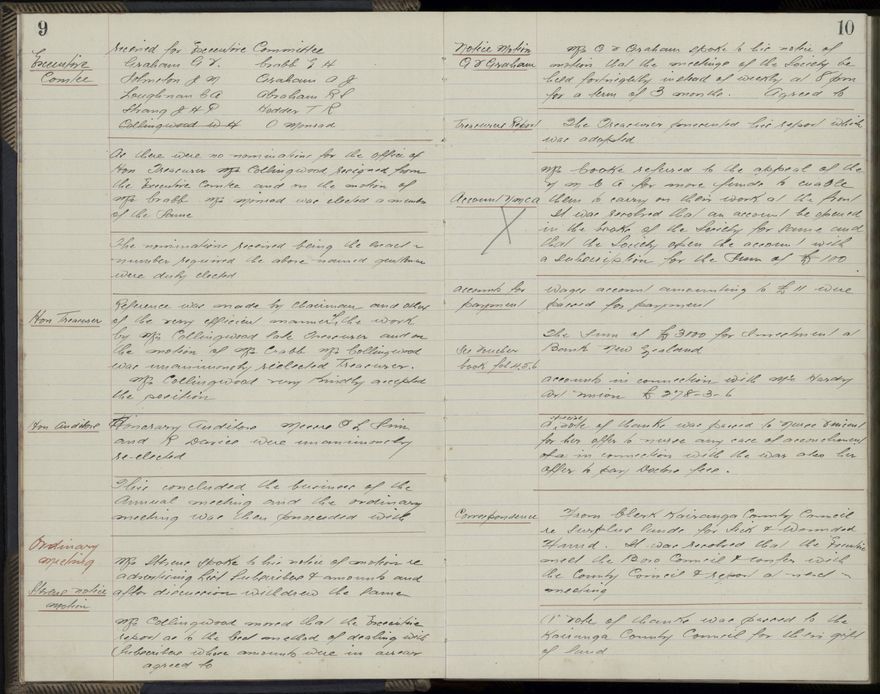 9
Executive
Comtee
received for Executive Committee
Graham C V. Crabb E H
Johnston J N Graham A J
Loughnan C A Abraham R S
Strang J H P Hodder T R
Collingwood W H O Monrad
As there were no nominations for the office of
Hon Treasurer Mr Collingwood resigned from
the Executive Comtee and on the motion of
Mr Crabb Mr Monrad was elected a member
of the same
The nominations received being the exact
number required the above named gentlemen
were duly elected
Hon Treasurer
Reference was made by chairman and others
of the very efficient manner of the work
by Mr Collingwood late Treasurer and on
the motion of Mr Crabb Mr Collingwood
was unanimously reelected Treasurer.
Mr Collingwood very kindly accepted
the position
Hon Auditors
Honorary Auditors Messrs O L Sim
and R Davies were unanimously
re-elected
This concluded the business of the
Annual meeting and the ordinary
meeting was then proceeded with
Ordinary
meeting
Stevens notice
motion
Mr Stevens spoke to his notice of motion re
advertising list Subscribers & amounts and
after discussion withdrew the same
Mr Collingwood moved that the Executive
report as to the best method of dealing with
Subscribers whose amounts were in arrear
agreed to
10
Notice Motion
C V Graham
Mr C V Graham spoke to his notice of
motion that the meetings of the Society be
held fortnightly instead of weekly at 8 pm
for a term of 3 months. Agreed to
Treasurers Report
The Treasurer presented his report which
was adopted
Account Y M C A
X
Mr Cooke referred to the appeal of the
Y M C A for more funds to enable
them to carry on their work at the front
It was resolved that an account be opened
in the books of the Society for same and
that the Society open the account with
a subscription for the sum of £100
accounts for
payment
wages account amounting to £11 were
passed for payment
See voucher
book fol 4.5.6
The sum of £3100 for Investment at
Bank New Zealand
accounts in connection with Mrs Hardy
Art Union £278-3-6
A vote of thanks was passed to Nurse
for her offer to nurse any case of accouchement
in connection with the war also her
offer to pay Doctors fees.
Correspondence
From Clerk Kairanga County Council
re Surplus funds for Sick & Wounded
Fund. It was resolved that the Executive
meet the Boro Council & confer with
the County Council & report at next
meeting
A vote of thanks was passed to the
Kairanga County Council for their gift
of land